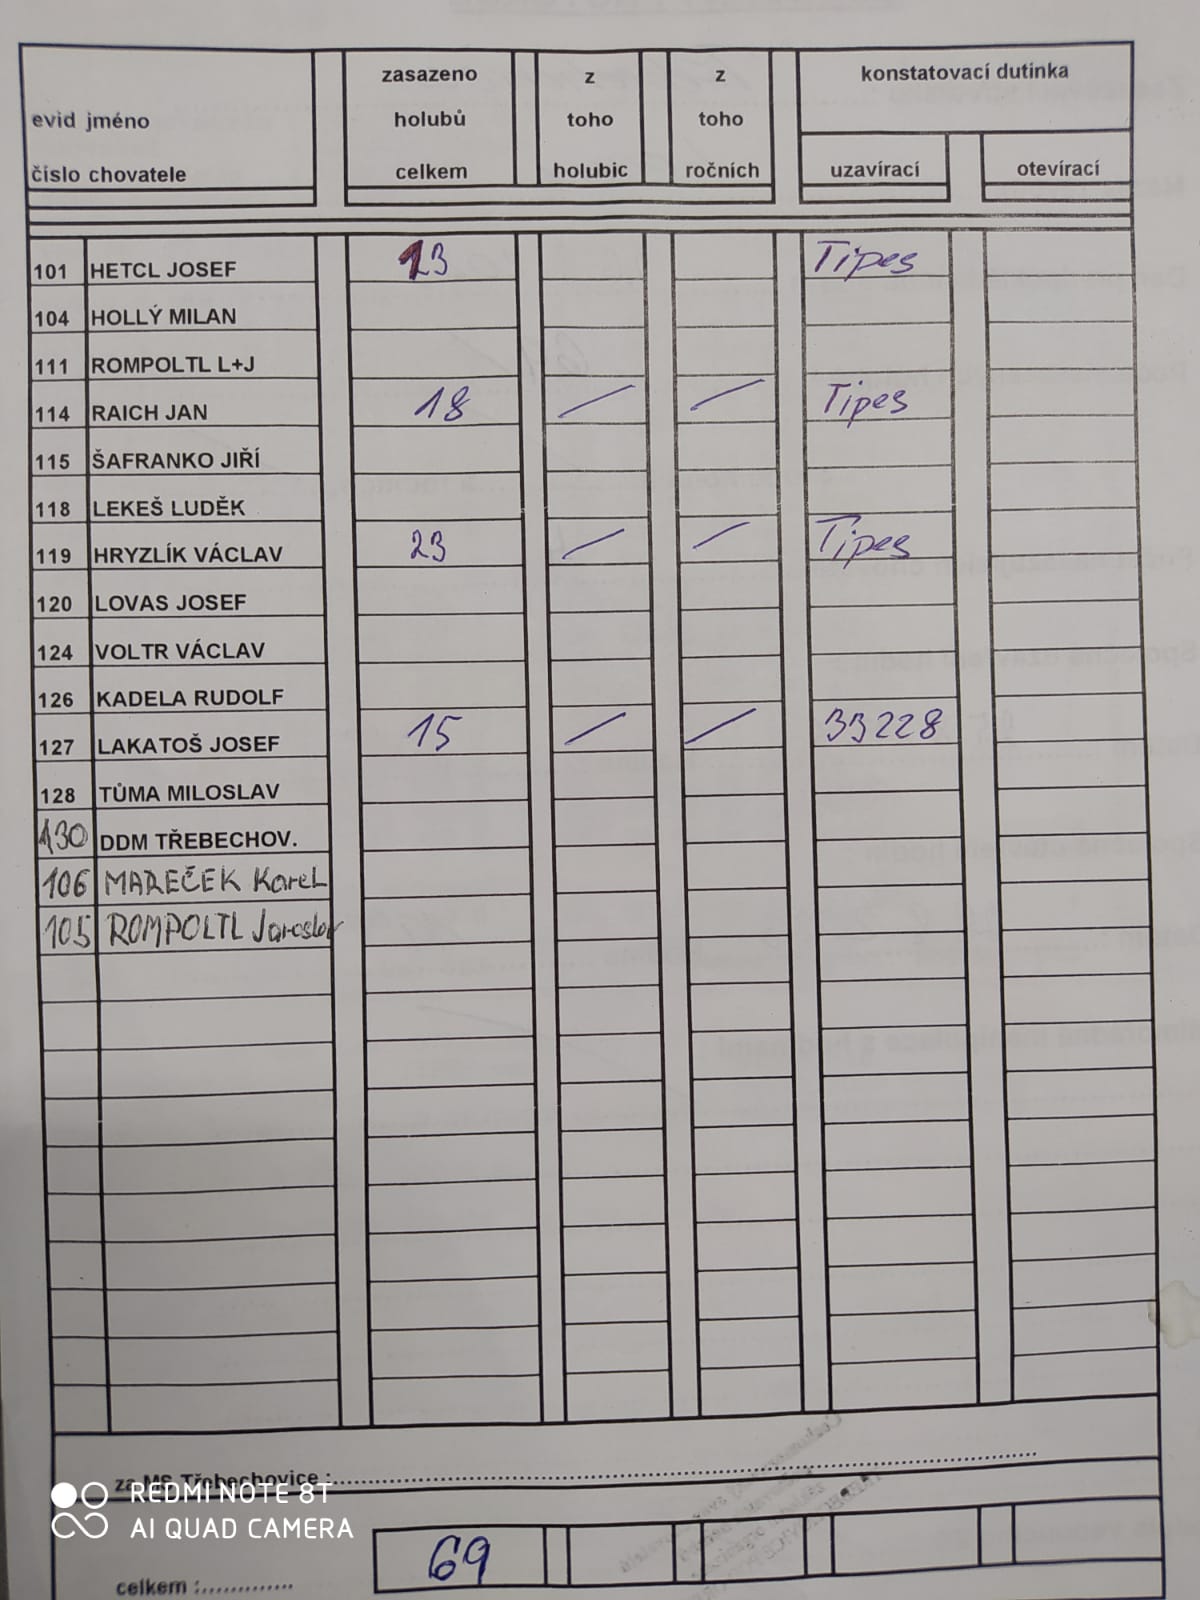 evid jméno
číslo chovatele
zasazeno
holubů
celkem
z
toho
holubic
z
toho
ročních
konstatovací dutinka
uzavírací
otevírací
101 HETCL JOSEF 13 Tipes
104 HOLLÝ MILAN
111 ROMPOLTL L+J
114 RAICH JAN 18 / / Tipes
115 ŠAFRANKO JIŘÍ
118 LEKEŠ LUDĚK
119 HRYZLÍK VÁCLAV 23 / / Tipes
120 LOVAS JOSEF
124 VOLTR VÁCLAV
126 KADELA RUDOLF
127 LAKATOŠ JOSEF 15 / / 33228
128 TŮMA MILOSLAV
130 DDM TŘEBECHOV.
106 MAREČEK Karel
105 ROMPOLTL Jaroslav
za MS Třebechovice :
REDMI NOTE 8T
AI QUAD CAMERA
celkem :............. 69